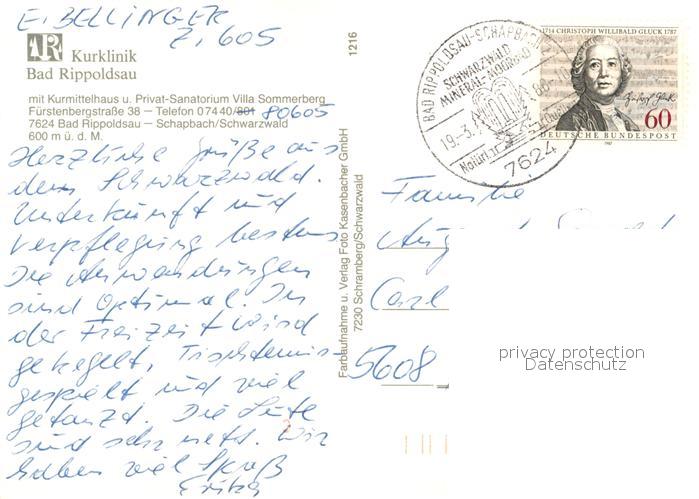 E. BELLINGER
Z. 605
AR Kurklinik
Bad Rippoldsau
mit Kurmittelhaus u. Privat-Sanatorium Villa Sommerberg
Fürstenbergstraße 38 – Telefon 07440/801 80605
7624 Bad Rippoldsau – Schapbach/Schwarzwald
600 m ü. d. M.
Herzliche Grüße aus
dem Schwarzwald.
Unterkunft und
Verpflegung bestens
Die Anwendungen
sind Optimal. In
der Freizeit wird
gekegelt, Tischtennis-
gespielt und viel
getanzt. Die Leute
sind sehr nett. Wir
haben viel Spaß
1216
Farbaufnahme u. Verlag Foto Kasenbacher GmbH
7230 Schramberg/Schwarzwald
BAD RIPPOLDSAU-SCHAPBACH
SCHWARZWALD
MINERAL-MOORBAD
19.-3.
88
7624
1714 CHRISTOPH WILLIBALD GLUCK 1787
60
DEUTSCHE BUNDESPOST
1987
Familie
Aug
Carl
5608
privacy protection
Datenschutz